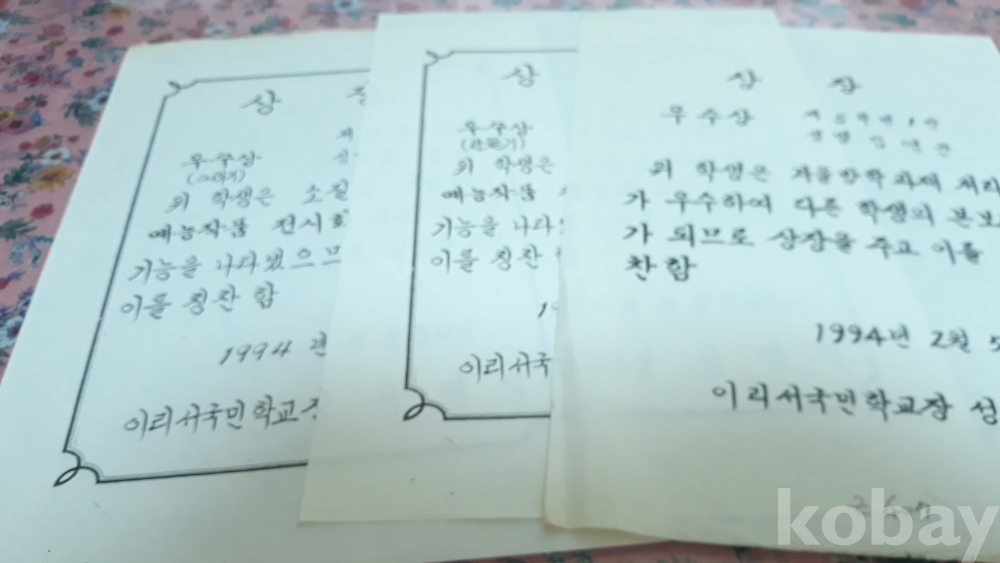 상
우수상
(그리기)
위 학생은 소질
예능작품 전시회
기능을 나타냈으므
이를 칭찬 함
1994 년
이리서국민학교장
상
우수상
위 학생은
예능작품
기능을 나타냈
이를 칭찬
19
이리서국
상 장
우수상 제 5 학년 1 반
성명
위 학생은 겨울방학과제 처리
가 우수하여 다른 학생의 본보
가 되므로 상장을 주고 이를
찬함
1994년 2월 5
이리서국민학교장 성
kobay